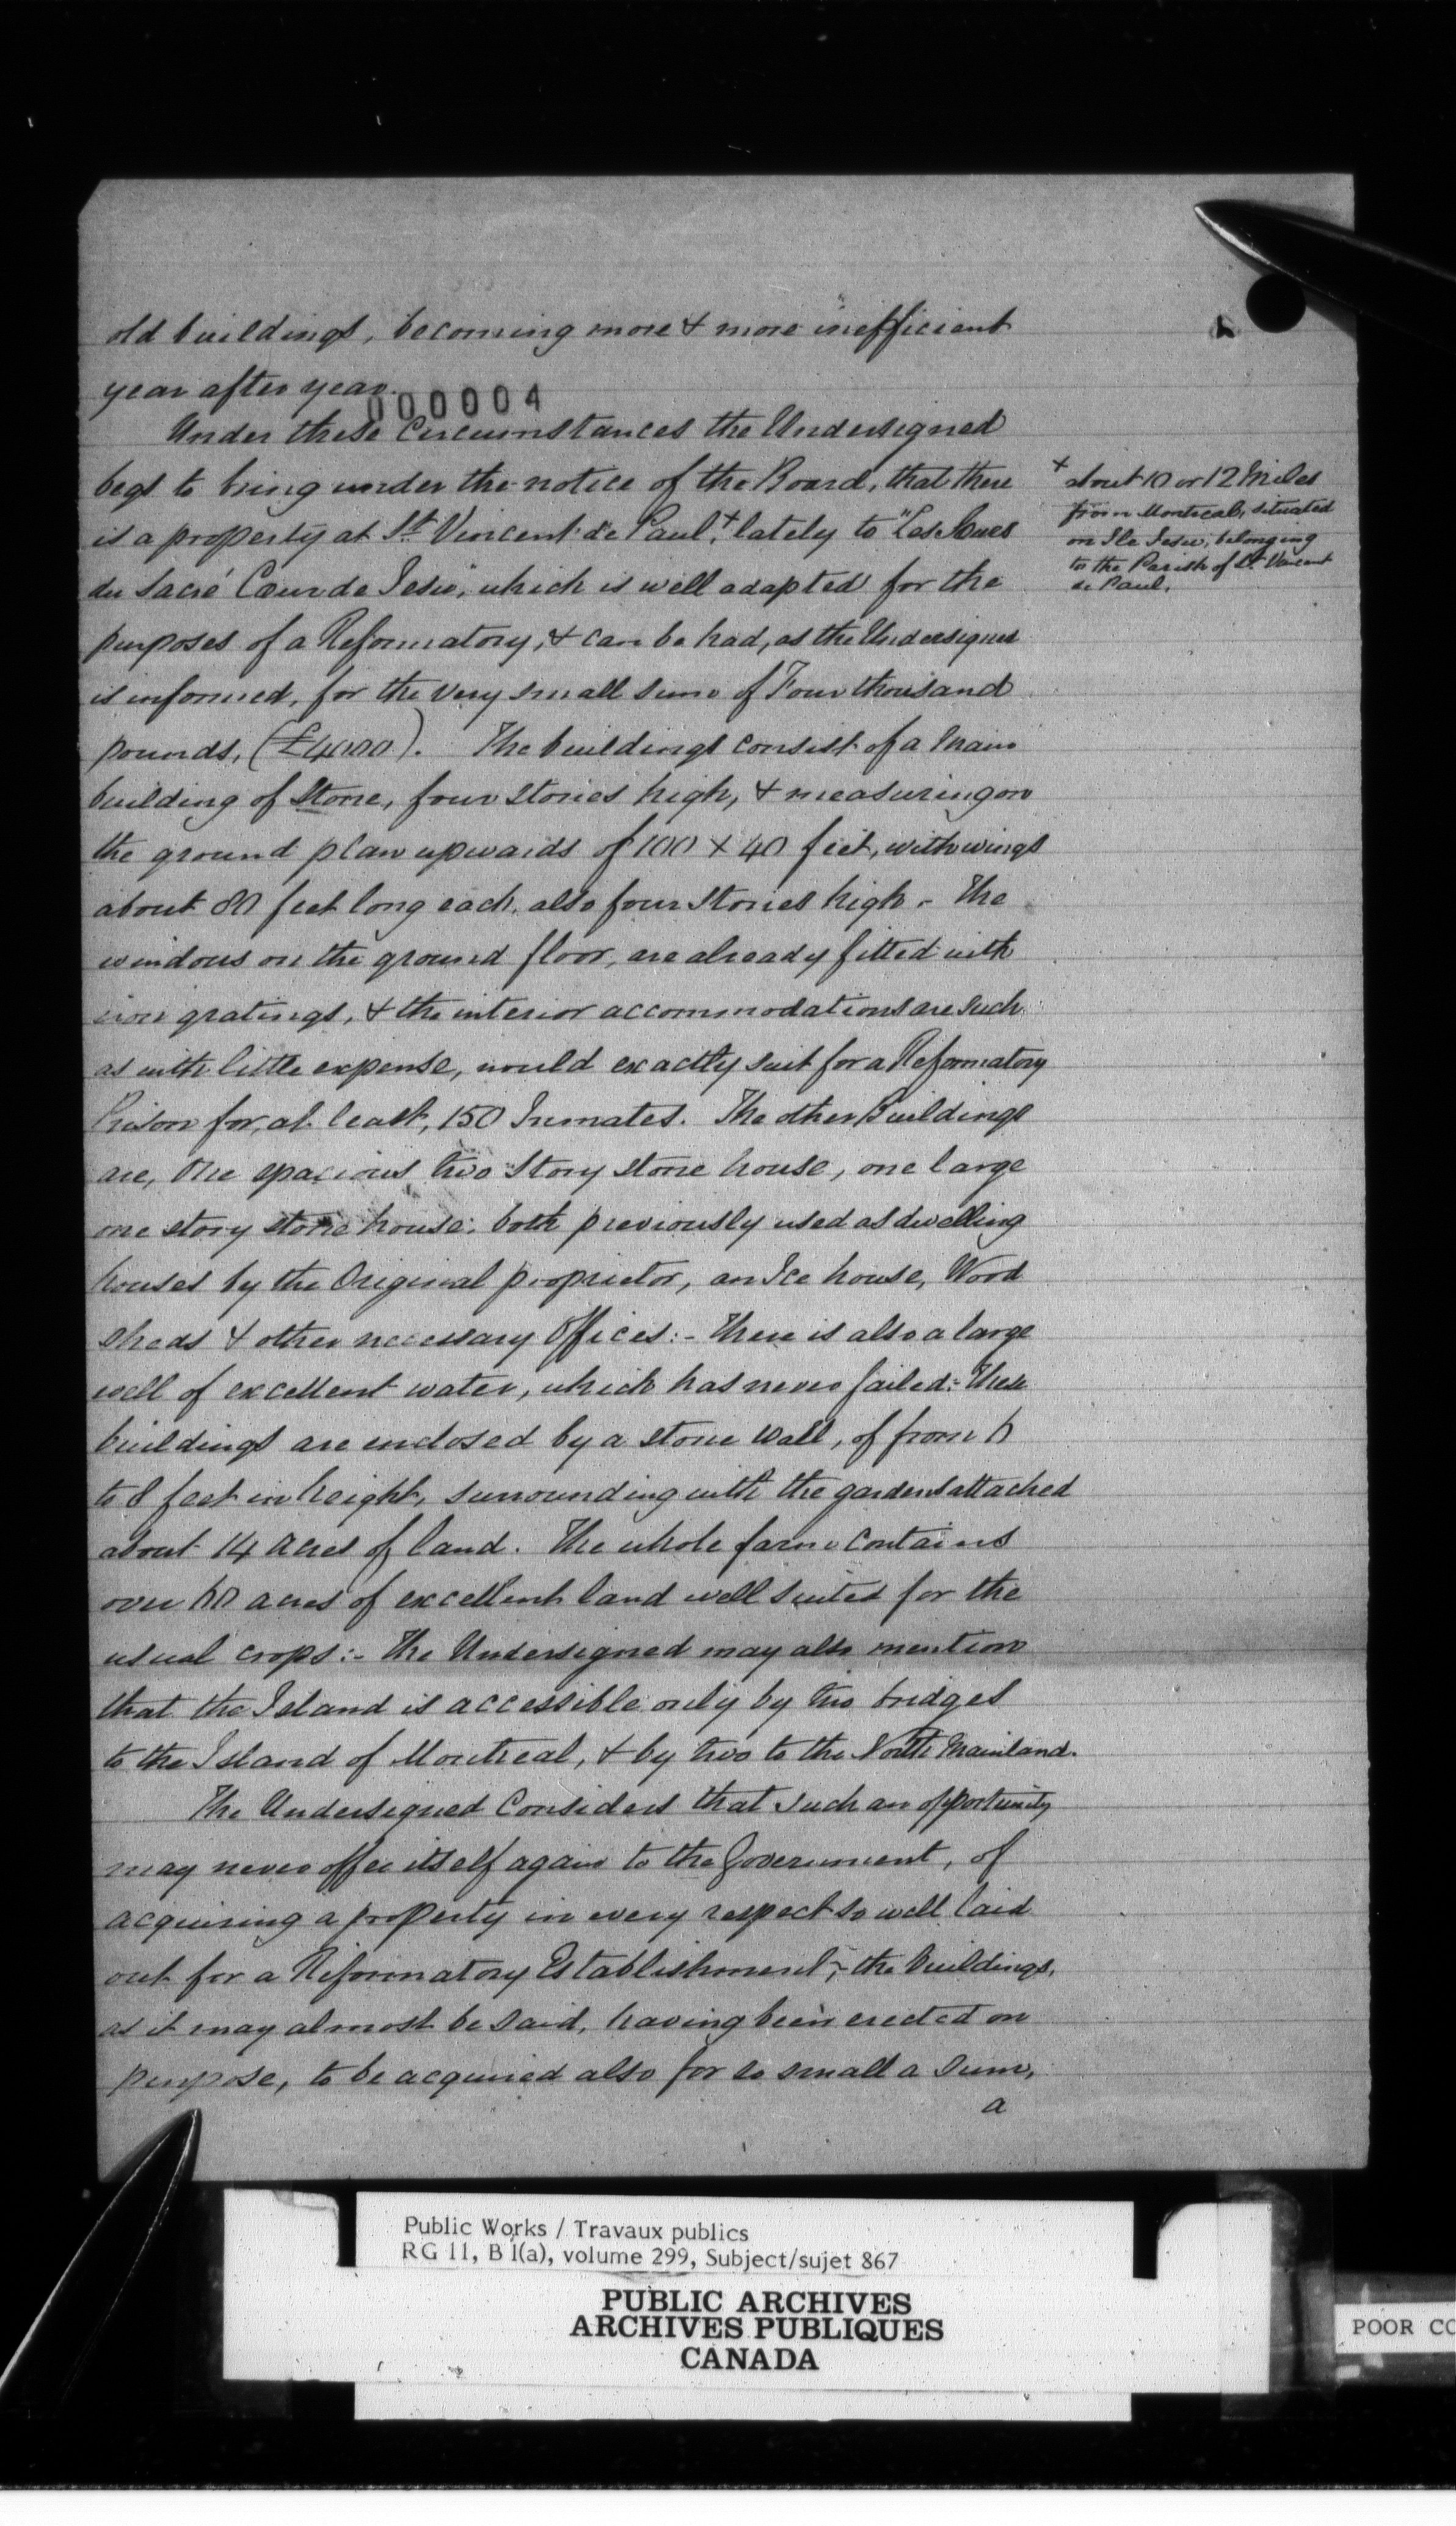 old buildings, becoming more & more inefficient
year after year.
000004
Under these Circumstances the Undersigned
begs to bring under the notice of the Board, that there
is a property at St. Vincent de Paul,+ lately to "Les Sœurs
du Sacré Cœur de Jesu", which is well adapted for the
purposes of a Reformatory, & can be had, as the Undersigned
is informed, for the very small sum of Four thousand
pounds, (£4000). The buildings consist of a Main
building of Stone, four stories high, & measuring on
the ground plan upwards of 100 x 40 feet, with wings
about 80 feet long each, also four Stories high. - The
windows on the ground floor, are already fitted with
iron gratings, & the interior accommodations are such
as with little expense, would exactly suit for a Reformatory
Prison for, at least, 150 Inmates. The other Buildings
are, One spacious two Story stone house, one large
one story stone house; both previously used as dwelling
houses by the Original proprietor, an Ice house, Wood
sheds & other necessary Offices:- There is also a large
well of excellent water, which has never failed:- These
buildings are enclosed by a stone Wall, of from 6
to 8 feet in height, surrounding with the gardens attached
about 14 acres of land. The whole farm contains
over 60 acres of excellent land well suited for the
usual crops:- The Undersigned may also mention
that the Island is accessible only by two bridges
to the Island of Montreal, & by two to the North Mainland.
The Undersigned Considers that such an opportunity
may never offer itself again to the Government, of
acquiring a property in every respect so well laid
out for a Reformatory Establishment;- the buildings,
as it may almost be said, having been erected on
purpose, to be acquired also for so small a sum,
a
+ about 10 or 12 Miles
from Montreal, situated
on Ile Jesu, belonging
to the Parish of St. Vincent
de Paul.
Public Works / Travaux publics
RG 11, B 1(a), volume 299, Subject/sujet 867
PUBLIC ARCHIVES
ARCHIVES PUBLIQUES
CANADA
POOR CO